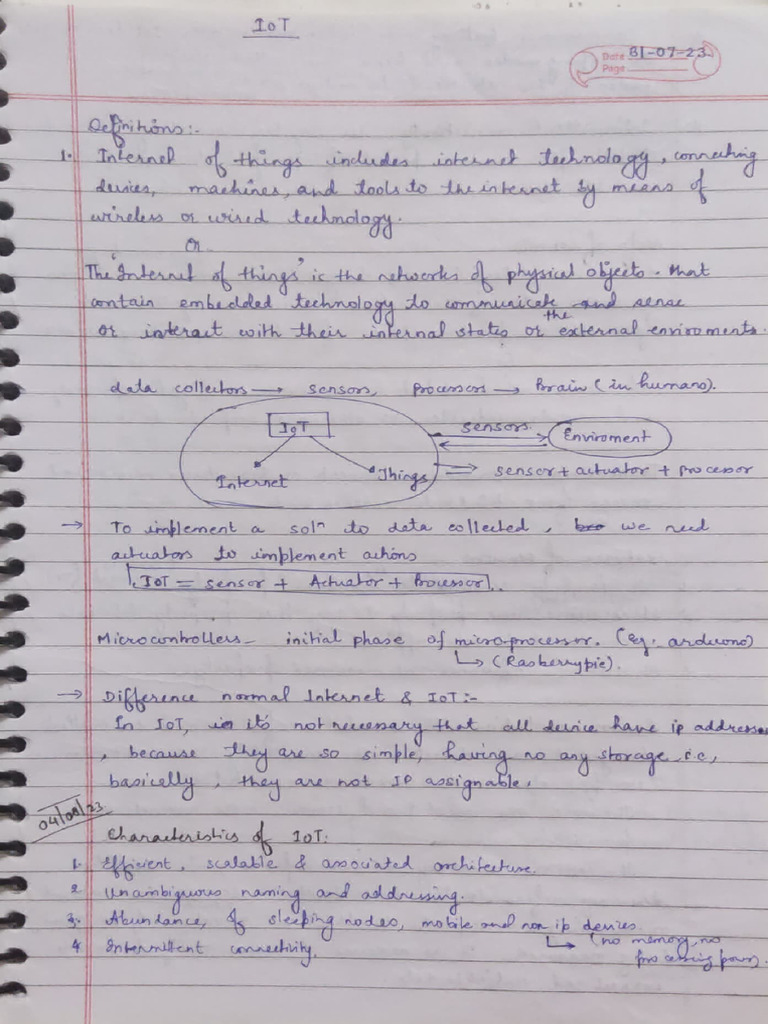 IoT
Date 31-07-23
Page
Definitions:-
1. Internet of things includes internet technology, connecting
devies, machines, and tools to the internet by means of
wireless or wired technology.
Or
The 'Internet of things' is the networks of physical objects. that
contain embedded technology to communicate and sense
or interact with their internal states or the external enviroments.
data collectors → sensors, processors → Brain (in humans).
IoT
sensors
Enviroment
Internet
Things ⇒ sensor + actuator + processor
→ To implement a solⁿ to data collected, we need
actuators to implement actions
IoT = sensor + Actuator + Processor
Microcontrollers - initial phase of microprocessor. (eg. arduono)
↳ (Rasberrypie).
→ Difference normal Internet & IoT:-
In IoT, it's not necessary that all device have ip addresses
, because they are so simple, having no any storage i.e,
basicelly, they are not IP assignable.
04/08/23
Characteristics of IoT:
1. Efficient, scalable & associated architecture.
2. Unambiguous naming and addressing.
3. Abundance, of sleeping nodes, mobile and non ip devies.
↳ (no memory, no
processing power).
4. Intermittent connectivity.